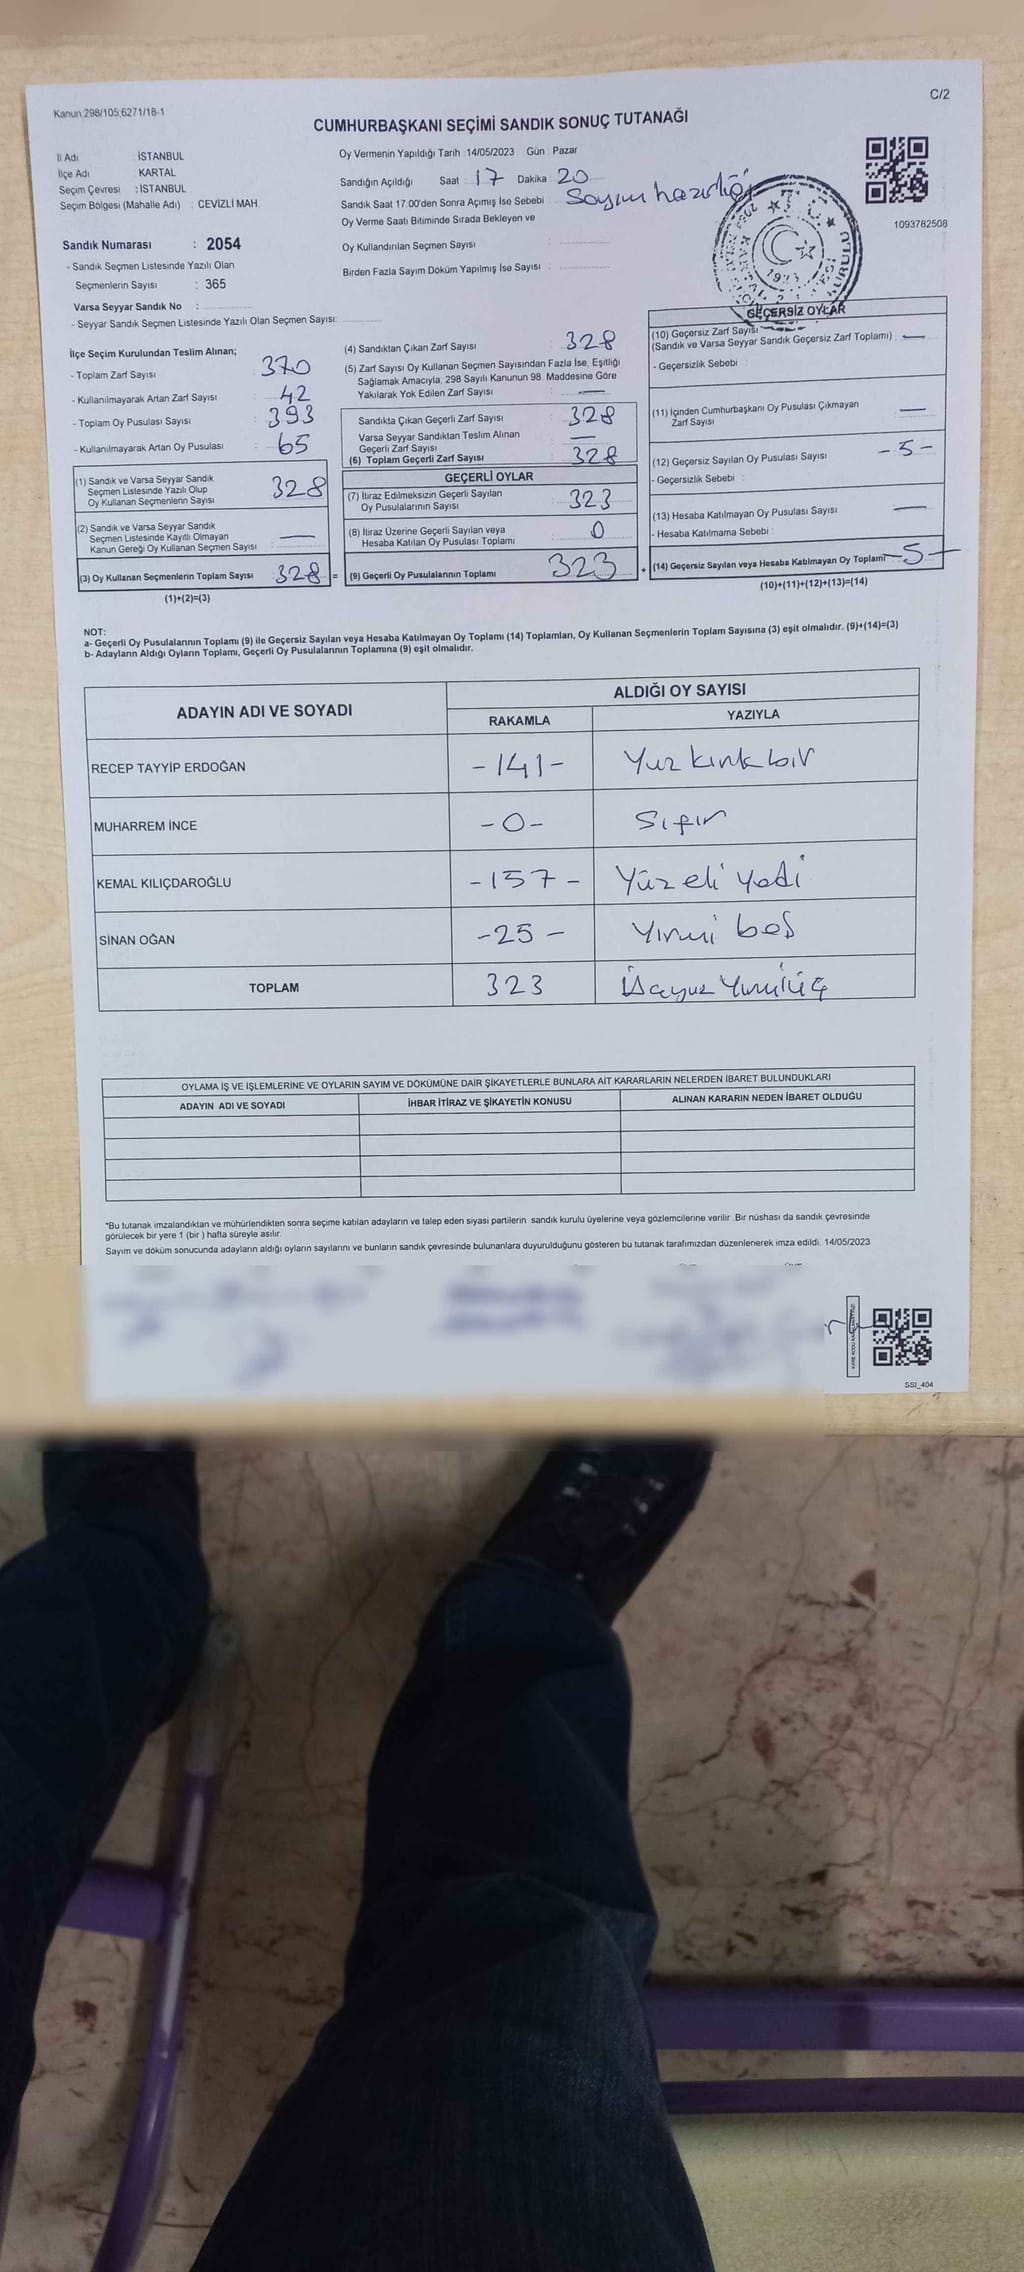 Kanun 298/105,6271/18-1
C/2
CUMHURBAŞKANI SEÇİMİ SANDIK SONUÇ TUTANAĞI
İl Adı : İSTANBUL
İlçe Adı : KARTAL
Seçim Çevresi : İSTANBUL
Seçim Bölgesi (Mahalle Adı) : CEVİZLİ MAH.
Sandık Numarası : 2054
- Sandık Seçmen Listesinde Yazılı Olan
Seçmenlerin Sayısı : 365
Varsa Seyyar Sandık No :
- Seyyar Sandık Seçmen Listesinde Yazılı Olan Seçmen Sayısı:
Oy Vermenin Yapıldığı Tarih : 14/05/2023 Gün : Pazar
Sandığın Açıldığı Saat : 17 Dakika : 20
Sandık Saat 17:00'den Sonra Açımış İse Sebebi : Sayım hazırlığı
Oy Verme Saati Bitiminde Sırada Bekleyen ve
Oy Kullandırılan Seçmen Sayısı :
Birden Fazla Sayım Döküm Yapılmış İse Sayısı :
1093782508
1923
İlçe Seçim Kurulundan Teslim Alınan;
- Toplam Zarf Sayısı : 370
- Kullanılmayarak Artan Zarf Sayısı : 42
- Toplam Oy Pusulası Sayısı : 393
- Kullanılmayarak Artan Oy Pusulası : 65
(1) Sandık ve Varsa Seyyar Sandık
Seçmen Listesinde Yazılı Olup
Oy Kullanan Seçmenlerin Sayısı : 328
(2) Sandık ve Varsa Seyyar Sandık
Seçmen Listesinde Kayıtlı Olmayan
Kanun Gereği Oy Kullanan Seçmen Sayısı : —
(3) Oy Kullanan Seçmenlerin Toplam Sayısı : 328 =
(1)+(2)=(3)
(4) Sandıktan Çıkan Zarf Sayısı : 328
(5) Zarf Sayısı Oy Kullanan Seçmen Sayısından Fazla İse, Eşitliği
Sağlamak Amacıyla, 298 Sayılı Kanunun 98. Maddesine Göre
Yakılarak Yok Edilen Zarf Sayısı : —
Sandıkta Çıkan Geçerli Zarf Sayısı : 328
Varsa Seyyar Sandıktan Teslim Alınan
Geçerli Zarf Sayısı : —
(6) Toplam Geçerli Zarf Sayısı : 328
GEÇERLİ OYLAR
(7) İtiraz Edilmeksizin Geçerli Sayılan
Oy Pusulalarının Sayısı : 323
(8) İtiraz Üzerine Geçerli Sayılan veya
Hesaba Katılan Oy Pusulası Toplamı : 0
(9) Geçerli Oy Pusulalarının Toplamı : 323 +
GEÇERSİZ OYLAR
(10) Geçersiz Zarf Sayısı
(Sandık ve Varsa Seyyar Sandık Geçersiz Zarf Toplamı) : —
- Geçersizlik Sebebi :
(11) İçinden Cumhurbaşkanı Oy Pusulası Çıkmayan
Zarf Sayısı : —
(12) Geçersiz Sayılan Oy Pusulası Sayısı : -5-
- Geçersizlik Sebebi :
(13) Hesaba Katılmayan Oy Pusulası Sayısı : —
- Hesaba Katılmama Sebebi :
(14) Geçersiz Sayılan veya Hesaba Katılmayan Oy Toplamı -5-
(10)+(11)+(12)+(13)=(14)
NOT:
a- Geçerli Oy Pusulalarının Toplamı (9) ile Geçersiz Sayılan veya Hesaba Katılmayan Oy Toplamı (14) Toplamları, Oy Kullanan Seçmenlerin Toplam Sayısına (3) eşit olmalıdır. (9)+(14)=(3)
b- Adayların Aldığı Oyların Toplamı, Geçerli Oy Pusulalarının Toplamına (9) eşit olmalıdır.
ADAYIN ADI VE SOYADI
ALDIĞI OY SAYISI
RAKAMLA YAZIYLA
RECEP TAYYİP ERDOĞAN -141- Yüz kırk bir
MUHARREM İNCE -0- Sıfır
KEMAL KILIÇDAROĞLU -157- Yüz eli yedi
SİNAN OĞAN -25- Yirmi beş
TOPLAM 323 Üçyüz Yirmiüç
OYLAMA İŞ VE İŞLEMLERİNE VE OYLARIN SAYIM VE DÖKÜMÜNE DAİR ŞİKAYETLERLE BUNLARA AİT KARARLARIN NELERDEN İBARET BULUNDUKLARI
ADAYIN ADI VE SOYADI İHBAR İTİRAZ VE ŞİKAYETİN KONUSU ALINAN KARARIN NEDEN İBARET OLDUĞU
*Bu tutanak imzalandıktan ve mühürlendikten sonra seçime katılan adayların ve talep eden siyasi partilerin sandık kurulu üyelerine veya gözlemcilerine verilir. Bir nüshası da sandık çevresinde
görülecek bir yere 1 (bir ) hafta süreyle asılır.
Sayım ve döküm sonucunda adayların aldığı oyların sayılarını ve bunların sandık çevresinde bulunanlara duyurulduğunu gösteren bu tutanak tarafımızdan düzenlenerek imza edildi. 14/05/2023
SSI_404